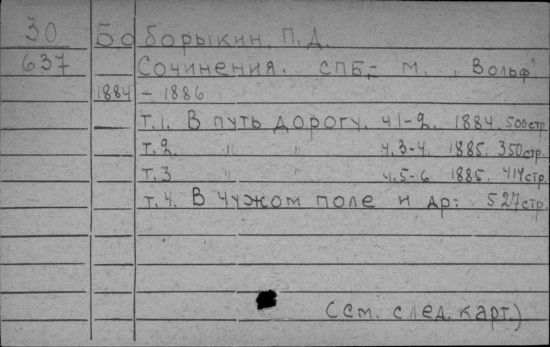 30 Боборыкин, П. Д.
637 Сочинения. СПБ,- М. "Вольф"
1884 - 1886
т.1. В путь дорогу. ч1-2. 1884. 500стр.
т.2. " " ч.3-4. 1885. 350стр.
т.3 " " ч.5-6 1885. 414стр.
т.4. В чужом поле и др: 527стр
(см. след. карт.)